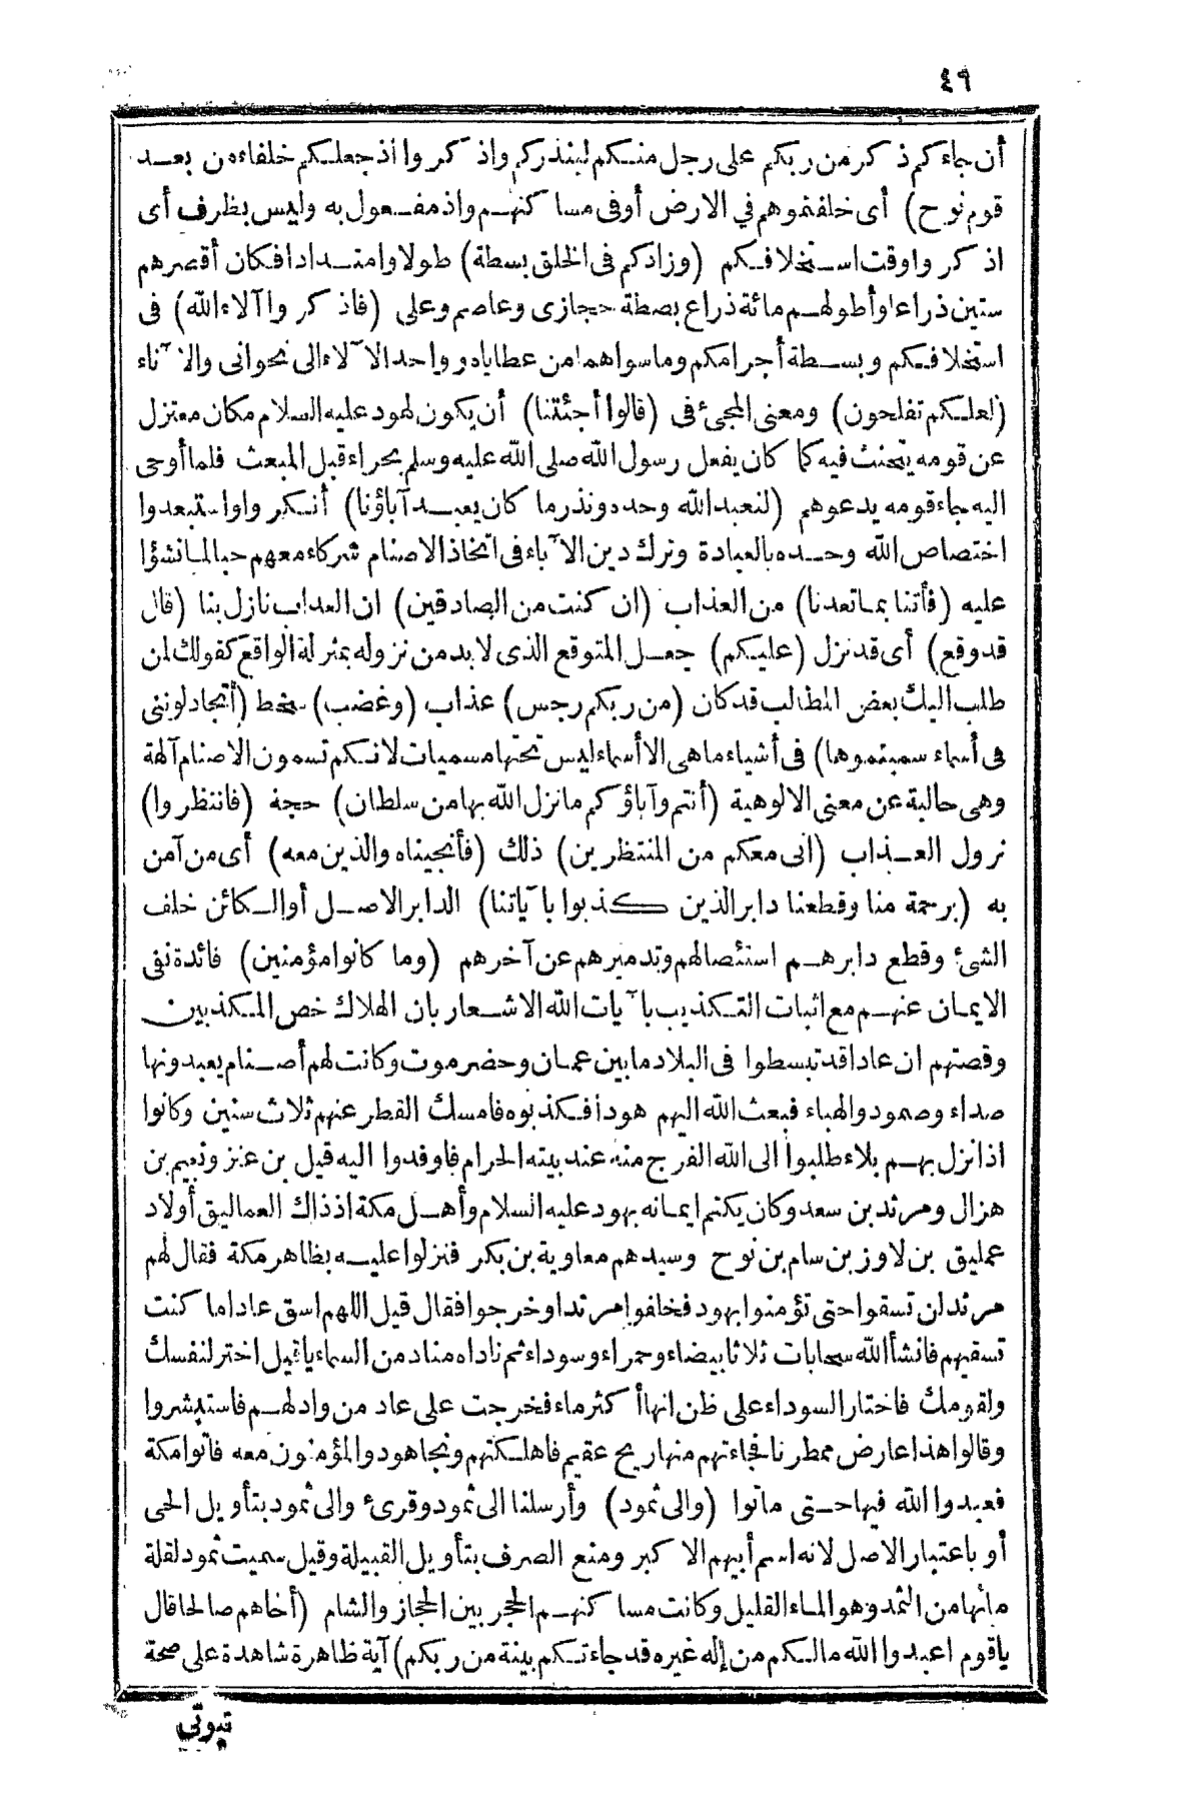 ٤٩
أن جاءكم ذكر من ربكم على رجل منكم لينذركم واذكروا اذ جعلكم خلفاء من بعد
قوم نوح) أى خلفتموهم في الارض أو فى مساكنهم واذ مفعول به وليس بظرف أى
اذكروا وقت استخلافكم (وزادكم فى الخلق بسطة) طولا وامتدادا فكان أقصرهم
ستين ذراعا وأطولهم مائة ذراع بصطة حجازى وعاصم وعلى (فاذكروا آلاء الله) فى
استخلافكم وبسطة أجرامكم وما سواهما من عطاياه وواحد الآلاء الى نحو انى والآناء
(لعلكم تفلحون) ومعنى المجئ فى (قالوا أجئتنا) أن يكون لهود عليه السلام مكان معتزل
عن قومه يتحنث فيه كما كان يفعل رسول الله صلى الله عليه وسلم بحراء قبل المبعث فلما أوحى
اليه جاء قومه يدعوهم (لنعبد الله وحده ونذر ما كان يعبد آباؤنا) أنكروا واستبعدوا
اختصاص الله وحده بالعبادة وترك دين الآباء فى اتخاذ الاصنام شركاء معهم حبا لما نشؤا
عليه (فأتنا بما تعدنا) من العذاب (ان كنت من الصادقين) ان العذاب نازل بنا (قال
قد وقع) أى قد نزل (عليكم) جعل المتوقع الذى لا بد من نزوله بمنزلة الواقع كقولك لمن
طلب اليك بعض المطالب قد كان (من ربكم رجس) عذاب (وغضب) سخط (أتجادلوننى
فى أسماء سميتموها) فى أشياء ما هى الا أسماء ليس تحتها مسميات لانكم تسمون الاصنام آلهة
وهى خالية عن معنى الالوهية (أنتم وآباؤكم ما نزل الله بها من سلطان) حجة (فانتظروا)
نزول العذاب (انى معكم من المنتظرين) ذلك (فأنجيناه والذين معه) أى من آمن
به (برحمة منا وقطعنا دابر الذين كذبوا بآياتنا) الدابر الاصل أو الكائن خلف
الشئ وقطع دابرهم استئصالهم وتدميرهم عن آخرهم (وما كانوا مؤمنين) فائدة نفى
الايمان عنهم مع اثبات التكذيب بآيات الله الاشعار بان الهلاك خص المكذبين
وقصتهم ان عادا قد تبسطوا فى البلاد ما بين عمان وحضرموت وكانت لهم أصنام يعبدونها
صداء وصمود والهباء فبعث الله اليهم هودا فكذبوه فامسك القطر عنهم ثلاث سنين وكانوا
اذا نزل بهم بلاء طلبوا الى الله الفرج منه عند بيته الحرام فاوفدوا اليه قيل بن عنز ونعيم بن
هزال ومرثد بن سعد وكان يكتم ايمانه بهود عليه السلام وأهل مكة اذ ذاك العماليق أولاد
عمليق بن لاوز بن سام بن نوح وسيدهم معاوية بن بكر فنزلوا عليه بظاهر مكة فقال لهم
مرثد لن تسقوا حتى تؤمنوا بهود فخلفوا مرثدا وخرجوا فقال قيل اللهم اسق عادا ما كنت
تسقيهم فانشأ الله سحابات ثلاثا بيضاء وحمراء وسوداء ثم ناداه مناد من السماء يا قيل اختر لنفسك
ولقومك فاختار السوداء على ظن انها أكثر ماء فخرجت على عاد من واد لهم فاستبشروا
وقالوا هذا عارض ممطرنا فجاءتهم منها ريح عقيم فاهلكتهم ونجا هود والمؤمنون معه فاتوا مكة
فعبدوا الله فيها حتى ماتوا (والى ثمود) وأرسلنا الى ثمود وقرئ والى ثمود بتأويل الحى
أو باعتبار الاصل لانه اسم أبيهم الاكبر ومنع الصرف بتأويل القبيلة وقيل سميت ثمود لقلة
مائها من الثمد وهو الماء القليل وكانت مساكنهم الحجر بين الحجاز والشام (أخاهم صالحا قال
يا قوم اعبدوا الله مالكم من إله غيره قد جاءتكم بينة من ربكم) آية ظاهرة شاهدة على صحة
نبوتى